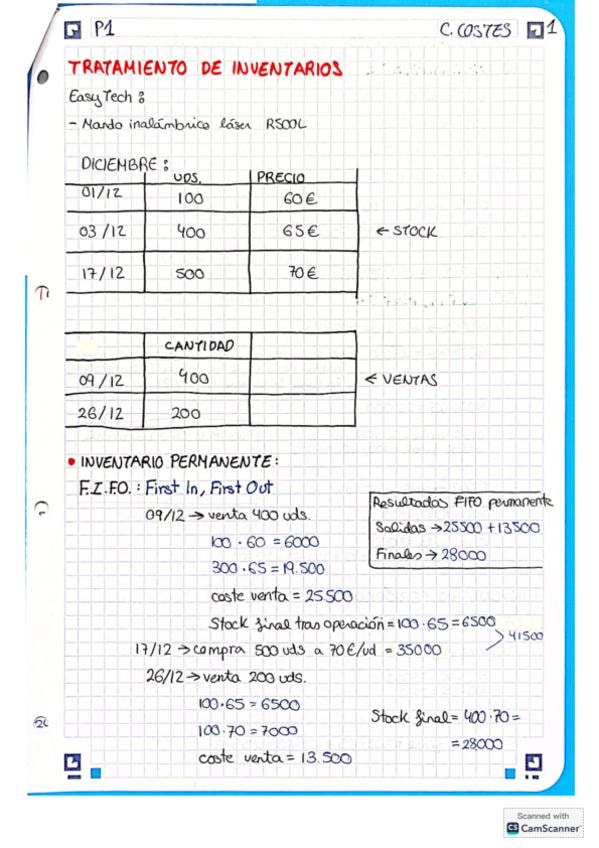 P1
C. COSTES 1
TRATAMIENTO DE INVENTARIOS
EasyTech:
- Mando inalámbrico láser R500L
DICIEMBRE:
UDS. PRECIO
01/12 100 60€
03/12 400 65€ ← STOCK
17/12 500 70€
CANTIDAD
09/12 400 ← VENTAS
26/12 200
• INVENTARIO PERMANENTE:
F.I.F.O.: First In, First Out
09/12 → venta 400 uds.
100 · 60 = 6000
300 · 65 = 19.500
coste venta = 25500
Stock final tras operación = 100 · 65 = 6500
17/12 → compra 500 uds a 70€/ud = 35000
41500
26/12 → venta 200 uds.
100·65 = 6500
100·70 = 7000
coste venta = 13.500
Resultados FIFO permanente
Salidas → 25500 + 13500
Finales → 28000
Stock final = 400·70 =
= 28000
Scanned with
CS CamScanner